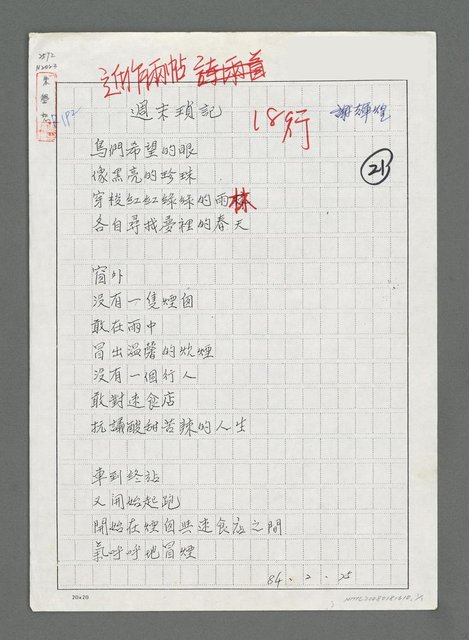 2592
N2023
近作兩帖 詩兩首
週末瑣記
18行
謝輝煌
21
鳥們希望的眼
像黑亮的珍珠
穿梭紅紅綠綠的雨林
各自尋找夢裡的春天
窗外
沒有一隻煙囪
敢在雨中
冒出溫馨的炊煙
沒有一個行人
敢對速食店
抗議酸甜苦辣的人生
車到終站
又開始起跑
開始在煙囪與速食店之間
氣呼呼地冒煙
84.2.25
20x20